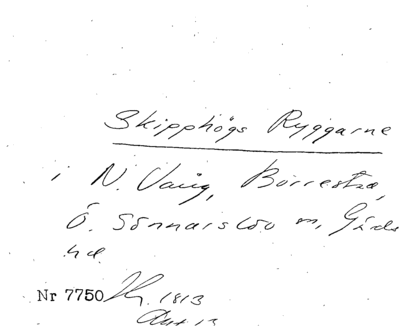 Skipphögs Ryggarne
i N. Vång, Borrestad,
Ö. Sönnarslöv m, Gärds
hd.
Nr 7750 1813